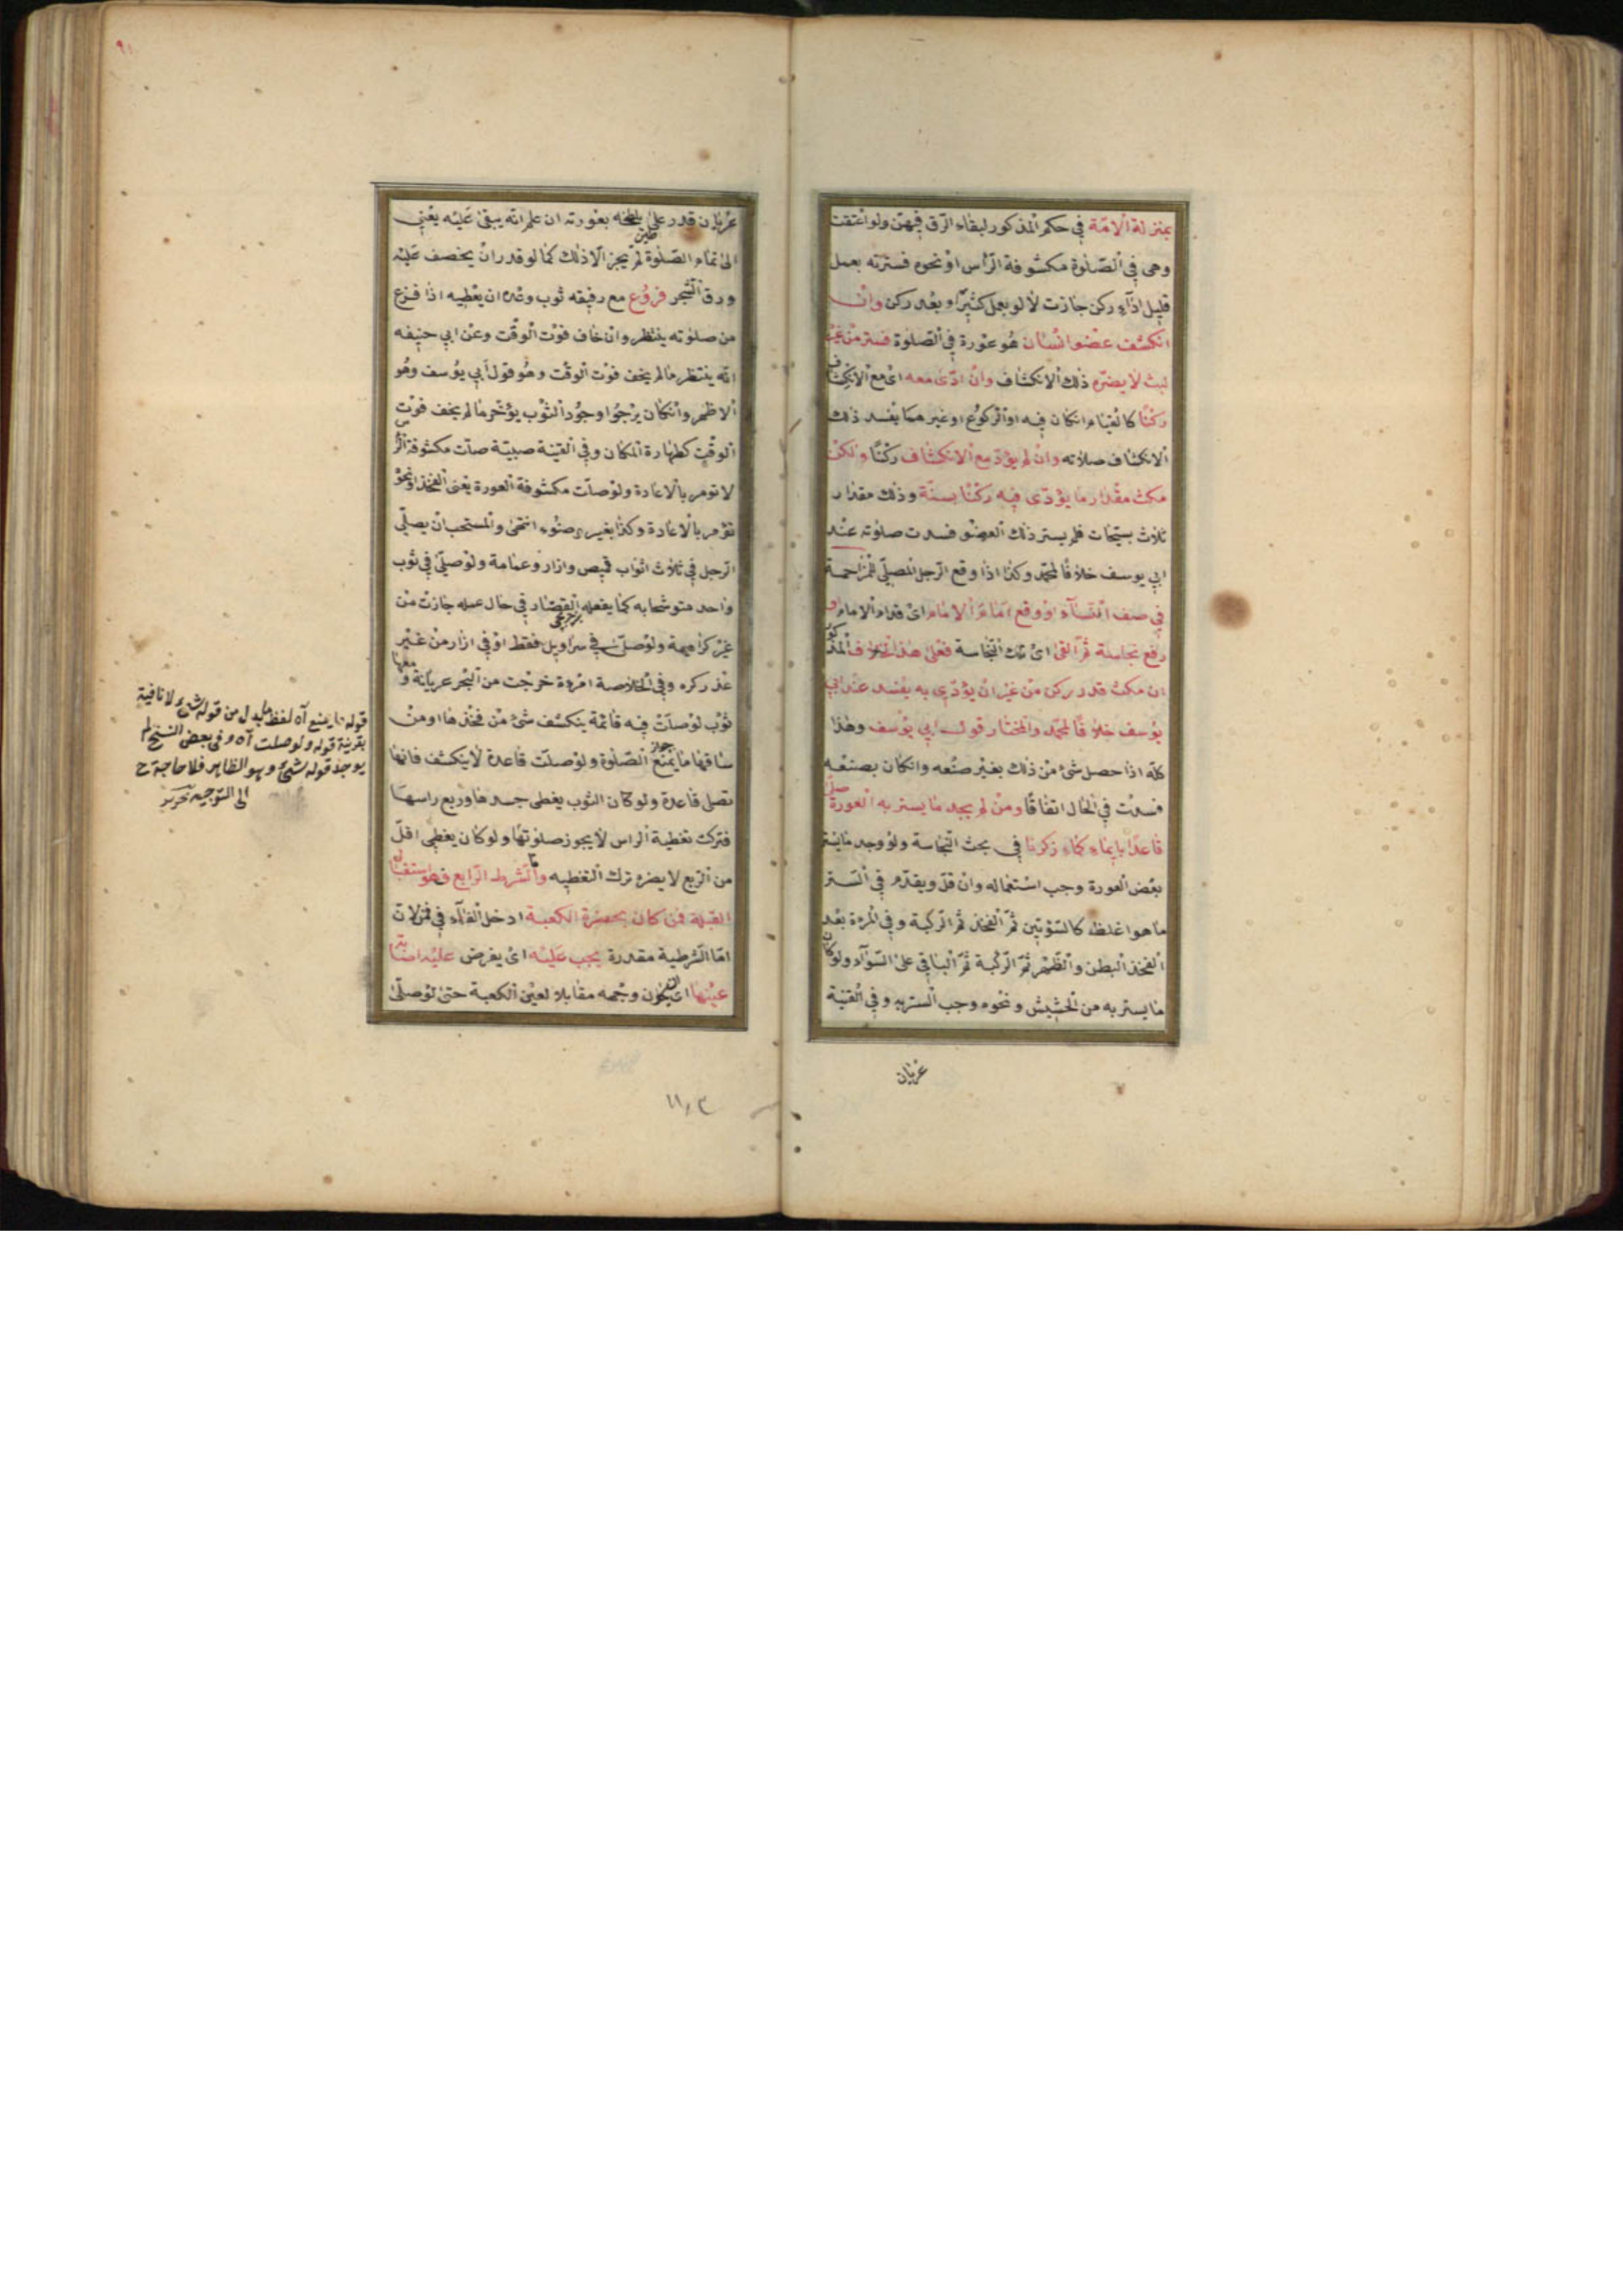 بمنزلة الامة في حكم المذكور لبقاء الرق فيهن ولو اعتقت
وهى في الصلوة مكشوفة الرأس او نحوه فسترته بعمل
قليل اداء ركن جازت لا لو بعمل كثير او بعد ركن وان
انكشف عضو انسان هو عورة في الصلوة فستر من غير
لبث لا يضره ذلك الانكشاف وان ادى معه اى مع الانكشاف
ركنا كالقيام انكان فيه او الركوع او غيرهما يفسد ذلك
الانكشاف صلاته وان لم يؤد مع الانكشاف ركنا ولكن
مكث مقدار ما يؤدى فيه ركنا بسنة وذلك مقدار
ثلاث تسبيحات فلم يستر ذلك العضو فسدت صلوته عند
ابي يوسف خلافا لمحمد وكذا اذا وقع الرجل المصلى للمزاحمة
في صف النساء او وقع امام الامام اى قدام الامام او
رفع نجاسة ثم القى اى تلك النجاسة فعلى هذا الخلاف المذكور
ان مكث قدر ركن من غير ان يؤدى به يفسد عند ابي
يوسف خلافا لمحمد والمختار قول ابي يوسف وهذا
كله اذا حصل شئ من ذلك بغير صنعه وانكان بصنعه
فسدت في الحال اتفاقا ومن لم يجد ما يستر به العورة صلى
قاعدا بايماء كما ذكرنا في بحث النجاسة ولو وجد ما يستر
بعض العورة وجب استعماله وان قل ويقدم في الستر
ما هو اغلظ كالسؤتين ثم الفخذ ثم الركبة وفي المرءة بعد
الفخذ البطن والظهر ثم الركبة ثم الباقي على السواء ولو كان
ما يستر به من الحشيش ونحوه وجب الستر به وفي القنية
عريان
عريان قدر على طين يلطخه بعورته ان علم انه يبقى عليه يعني
الى تمام الصلوة لم يجز الا ذلك كما لو قدر ان يخصف عليه
ورق الشجر فروع مع رفيقه ثوب وعده ان يعطيه اذا فرغ
من صلوته ينتظر وان خاف فوت الوقت وعن ابي حنيفه
انه ينتظر مالم يخف فوت الوقت وهو قول أبي يوسف وهو
الاظهر وانكان يرجوا وجود الثوب يؤخر مالم يخف فوت
الوقت كطهارة المكان وفي القنية صبية صلت مكشوفة الرأس
لا تؤمر بالاعادة ولو صلت مكشوفة العورة يعنى الفخذ او نحوه
تؤمر بالاعادة وكذا بغير وضوء انتهى والمستحب ان يصلى
الرجل في ثلاث اثواب قميص وازار وعمامة ولو صلى في ثوب
واحد متوشحا به كما يفعله القصار في حال عمله جازت من
غير كراهية ولو صلى في سراويل فقط او في ازار من غير
عذر كره وفي الخلاصة امرءة خرجت من البحر عريانة ومعها
ثوب لو صلت فيه قائمة ينكشف شئ من فخذها او من
ساقها ما يمنع جواز الصلوة ولو صلت قاعدة لا ينكشف فانها
تصل قاعدة ولو كان الثوب يغطى جسدها وربع راسها
فتركت تغطية الراس لا يجوز صلوتها ولو كان يغطى اقل
من الربع لا يضره ترك التغطيه واما الشرط الرابع فهو استقبال
القبلة فمن كان بحضرة الكعبة ادخل الفاء في فمن لان
اما الشرطية مقدرة يجب عليه اى يفرض عليه اصابة
عينها اى ان يكون وجهه مقابلا لعين الكعبة حتى لو صلى
قوله ما يمنع آه لفظ ما بدل من قوله شئ لا نافية
بقرينة قوله ولو صلت آه وفى بعض النسخ لم
يوجد قوله شئ وهو الظاهر فلا حاجة ح
الى التوجيه